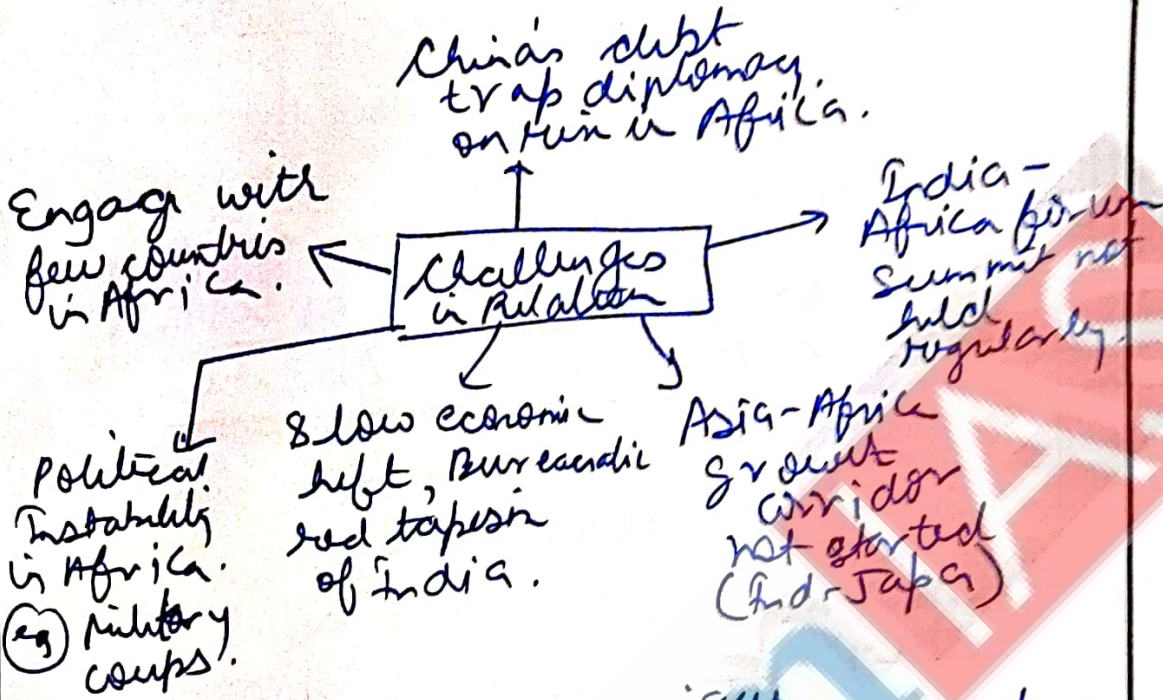 China's debt
trap diplomacy
on rise in Africa.
Engage with
few countries
in Africa.
Challenges
in Relation
India-
Africa forum
Summit not
held
regularly.
Political
Instability
in Africa.
eg military
coups.
Slow economic
heft, Bureacratic
red tapesim
of India.
Asia-Africa
growth
corridor
not started
(Ind-Japa)
IAS